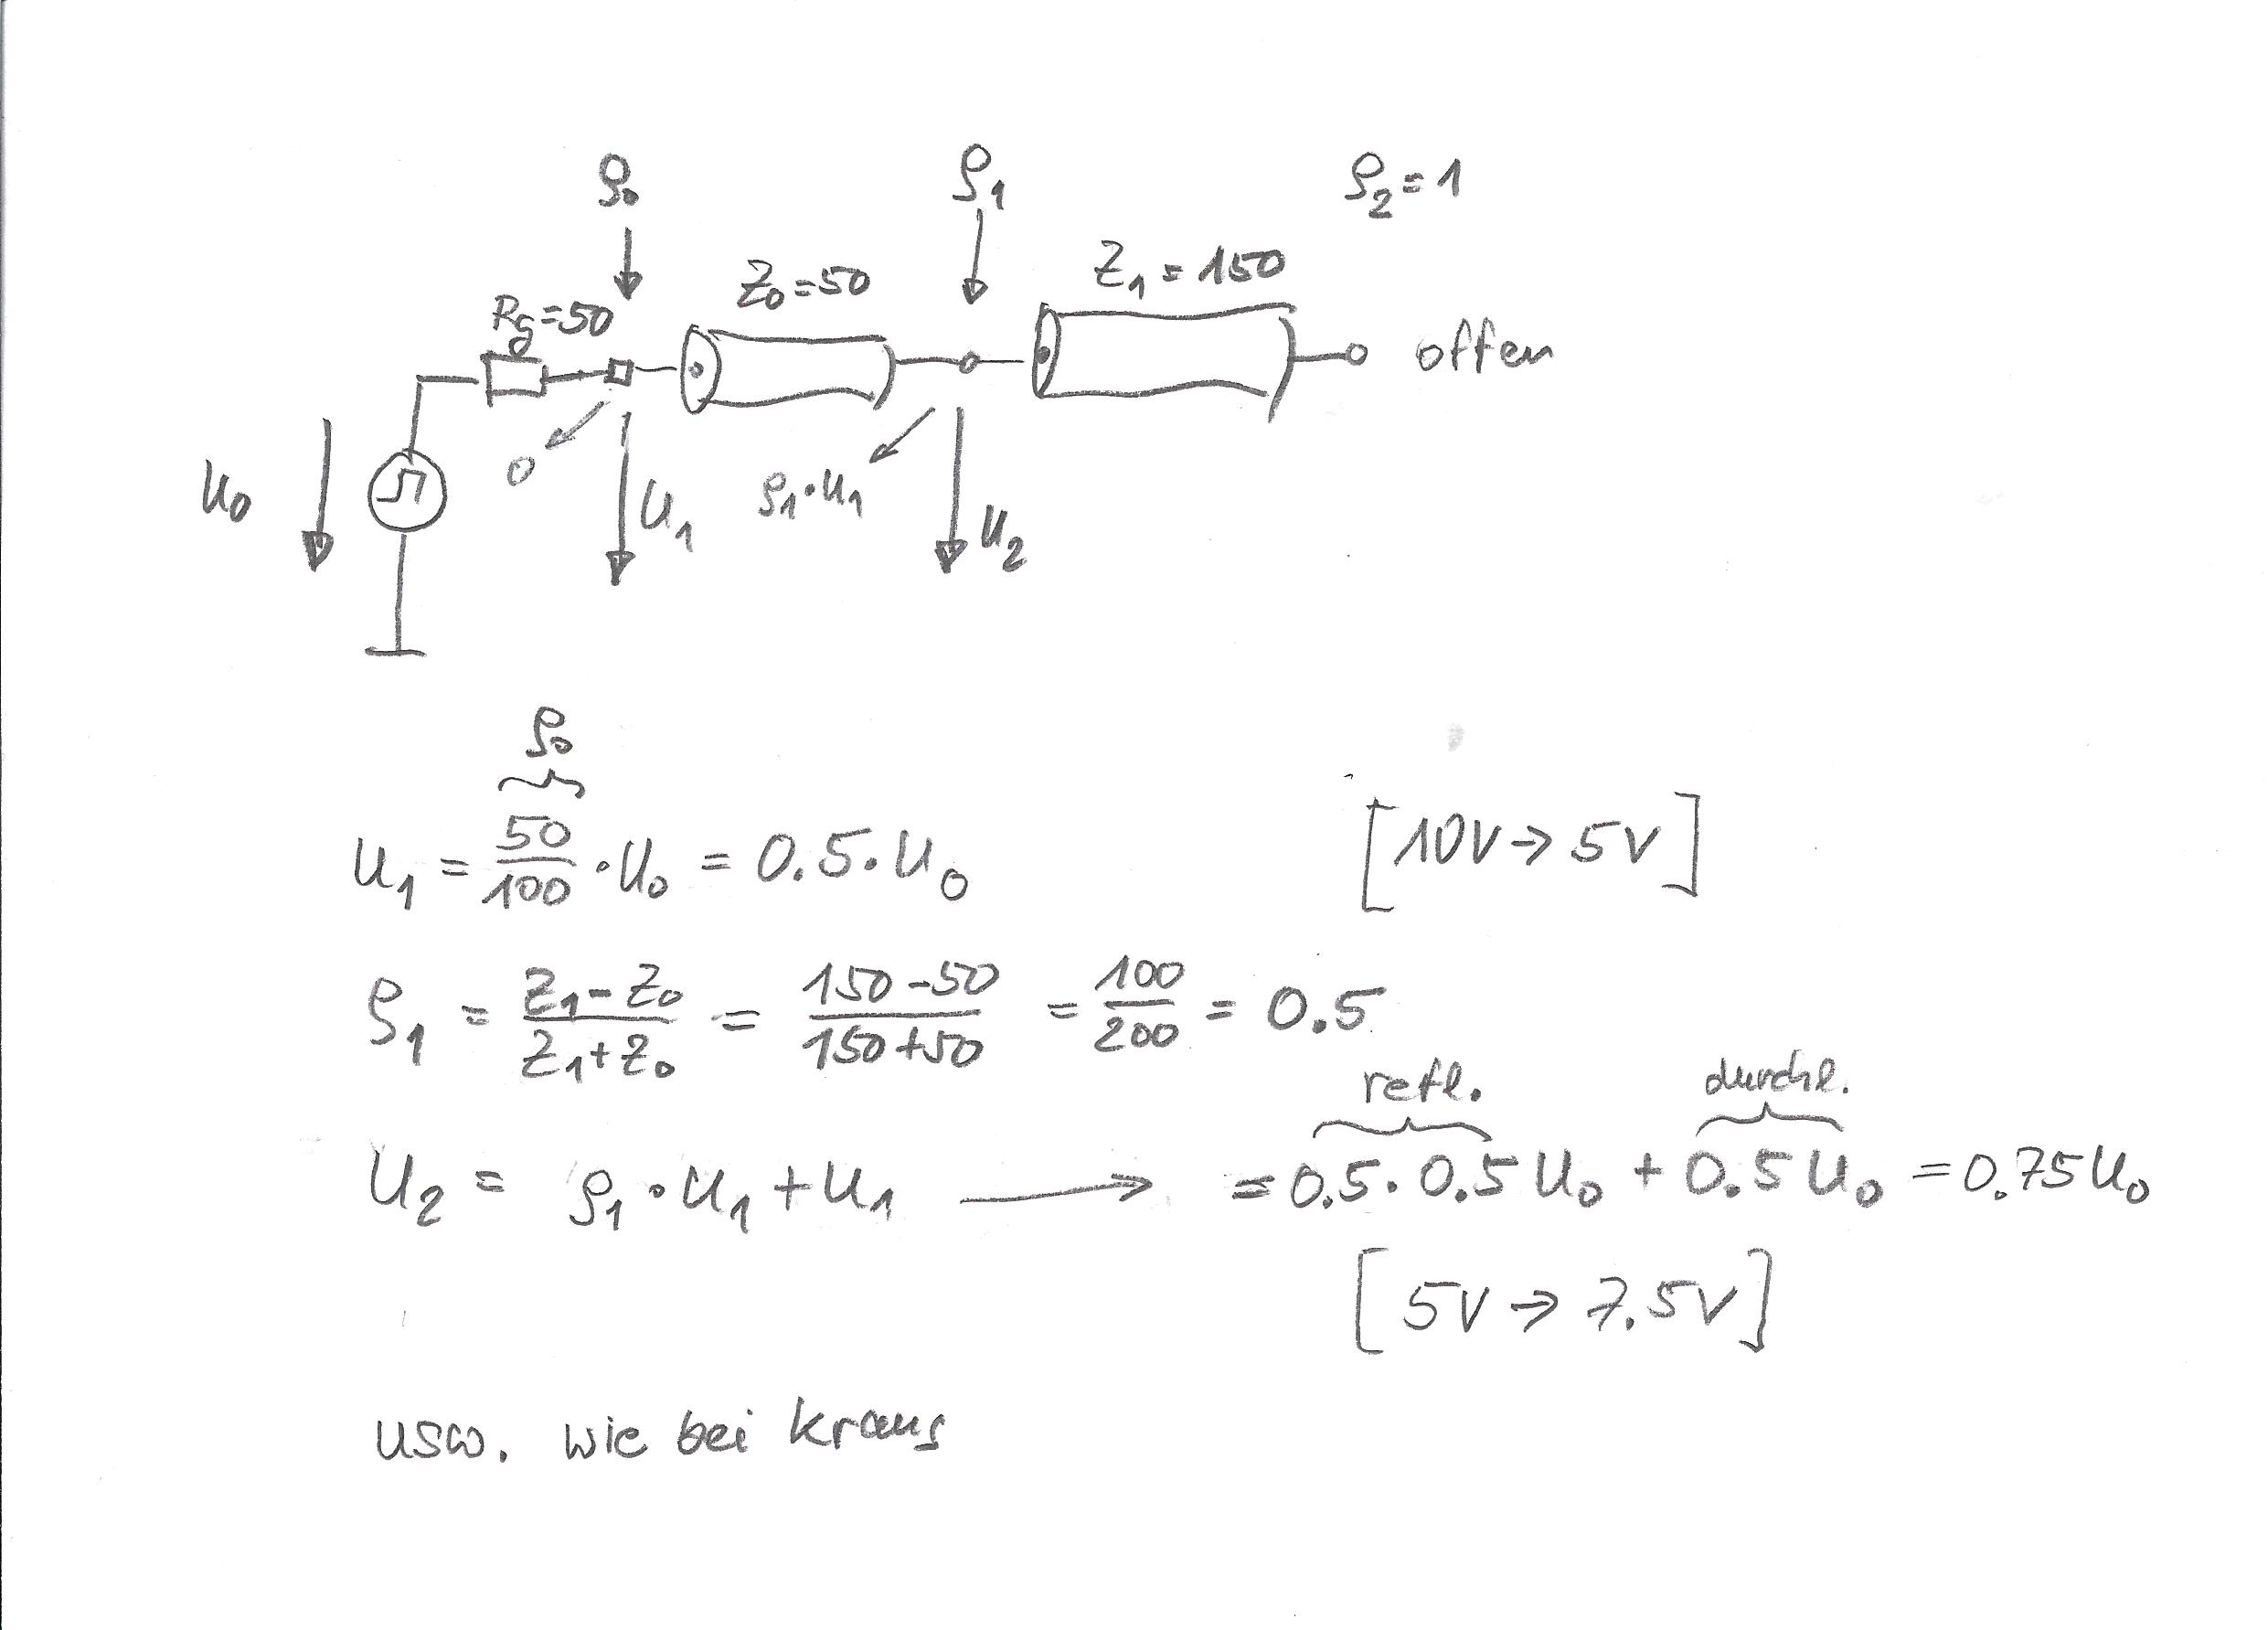 ρ₀ ρ₁ ρ₂=1
Rg=50 Z₀=50 Z₁=150
offen
U₀ 0 U₁ ρ₁·U₁ U₂
ρ₀
U₁ = 50/100 · U₀ = 0.5·U₀ [10V→5V]
ρ₁ = Z₁-Z₀/Z₁+Z₀ = 150-50/150+50 = 100/200 = 0.5
refl. durchl.
U₂ = ρ₁·U₁+U₁ → = 0.5·0.5U₀ + 0.5U₀ = 0.75U₀
[5V→7.5V]
usw. wie bei Kraus